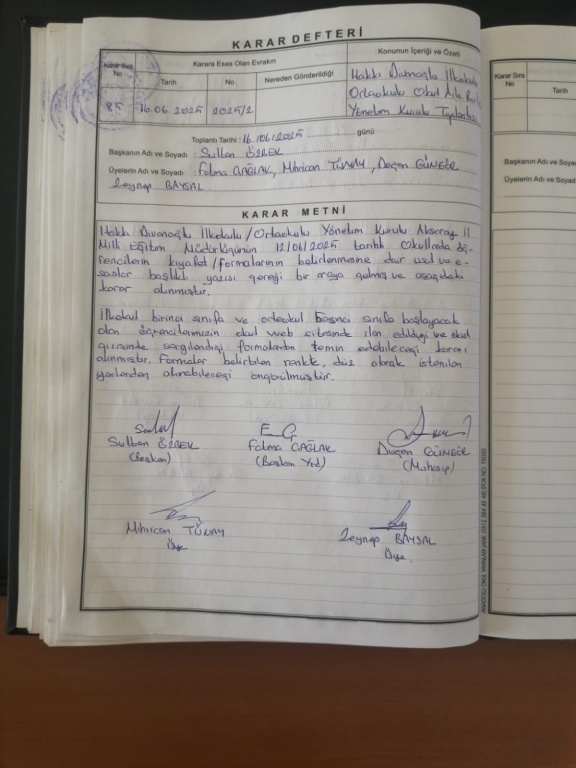 KARAR DEFTERİ
Karar Sıra No
Karara Esas Olan Evrakın
Konunun İçeriği ve Özeti
Tarih
No
Nereden Gönderildiği
85
16.06.2025
2025/2
Hakkı Divanoğlu İlkokulu
Ortaokulu Okul Aile Birl
Yönetim Kurulu Toplantısı
Toplantı Tarihi : 16/06/2025 günü
Başkanın Adı ve Soyadı : Sultan ÖZBEK
Üyelerin Adı ve Soyadı : Fatma ÇAĞLAK, Mihrican TÜNAY, Doğan GÜNGÖR
Zeynep BAYSAL
KARAR METNİ
Hakkı Divanoğlu İlkokulu/Ortaokulu Yönetim Kurulu Aksaray İl
Milli Eğitim Müdürlüğünün 12/06/2025 tarihli Okullarda öğ-
rencilerin kıyafet/formalarının belirlenmesine dair usul ve e-
saslar başlıklı yazısı gereği bir araya gelmiş ve aşağıdaki
karar alınmıştır.
İlkokul birinci sınıfa ve ortaokul beşinci sınıfa başlayacak
olan öğrencilerimizin okul web sitesinde ilan edildiği ve okul
girişinde sergilendiği formalardan temin edebileceği kararı
alınmıştır. Formalar belirtilen renkte, düz olarak istenilen
yerlerden alınabileceği öngörülmüştür.
Sultan ÖZBEK
(Başkan)
Fatma ÇAĞLAK
(Başkan Yrd)
Doğan GÜNGÖR
(Muhasip)
Mihrican TÜNAY
Üye
Zeynep BAYSAL
Üye.
Karar Sıra No
Tarih
Başkanın Adı
Üyelerin Adı ve